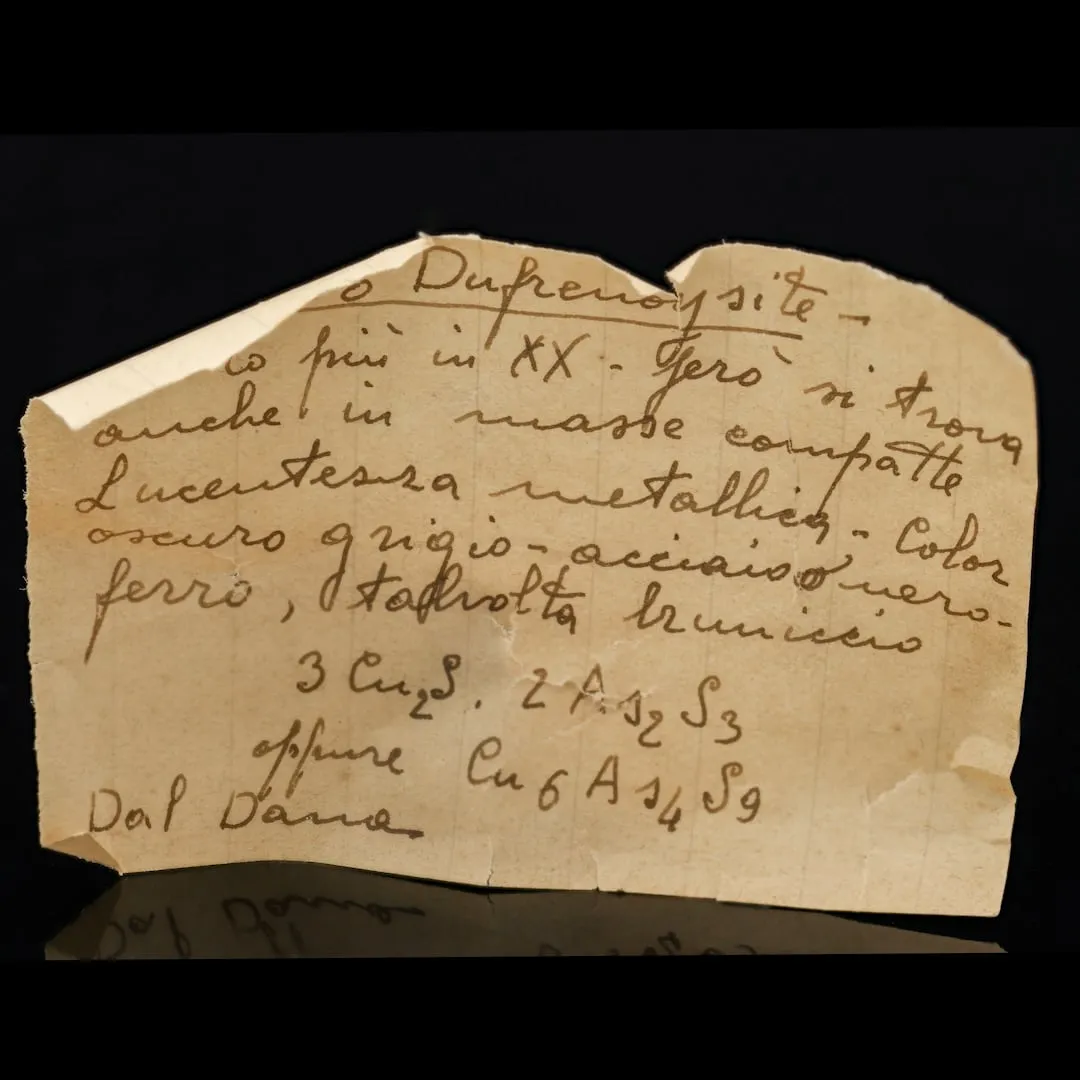 o Dufrenoysite -
co più in XX - Però si trova
anche in masse compatte
Lucentezza metallica - Color
oscuro grigio-acciaio o nero-
ferro, talvolta bruniccio
3 Cu₂S. 2 As₂S₃
oppure Cu₆As₄S₉
Dal Dana